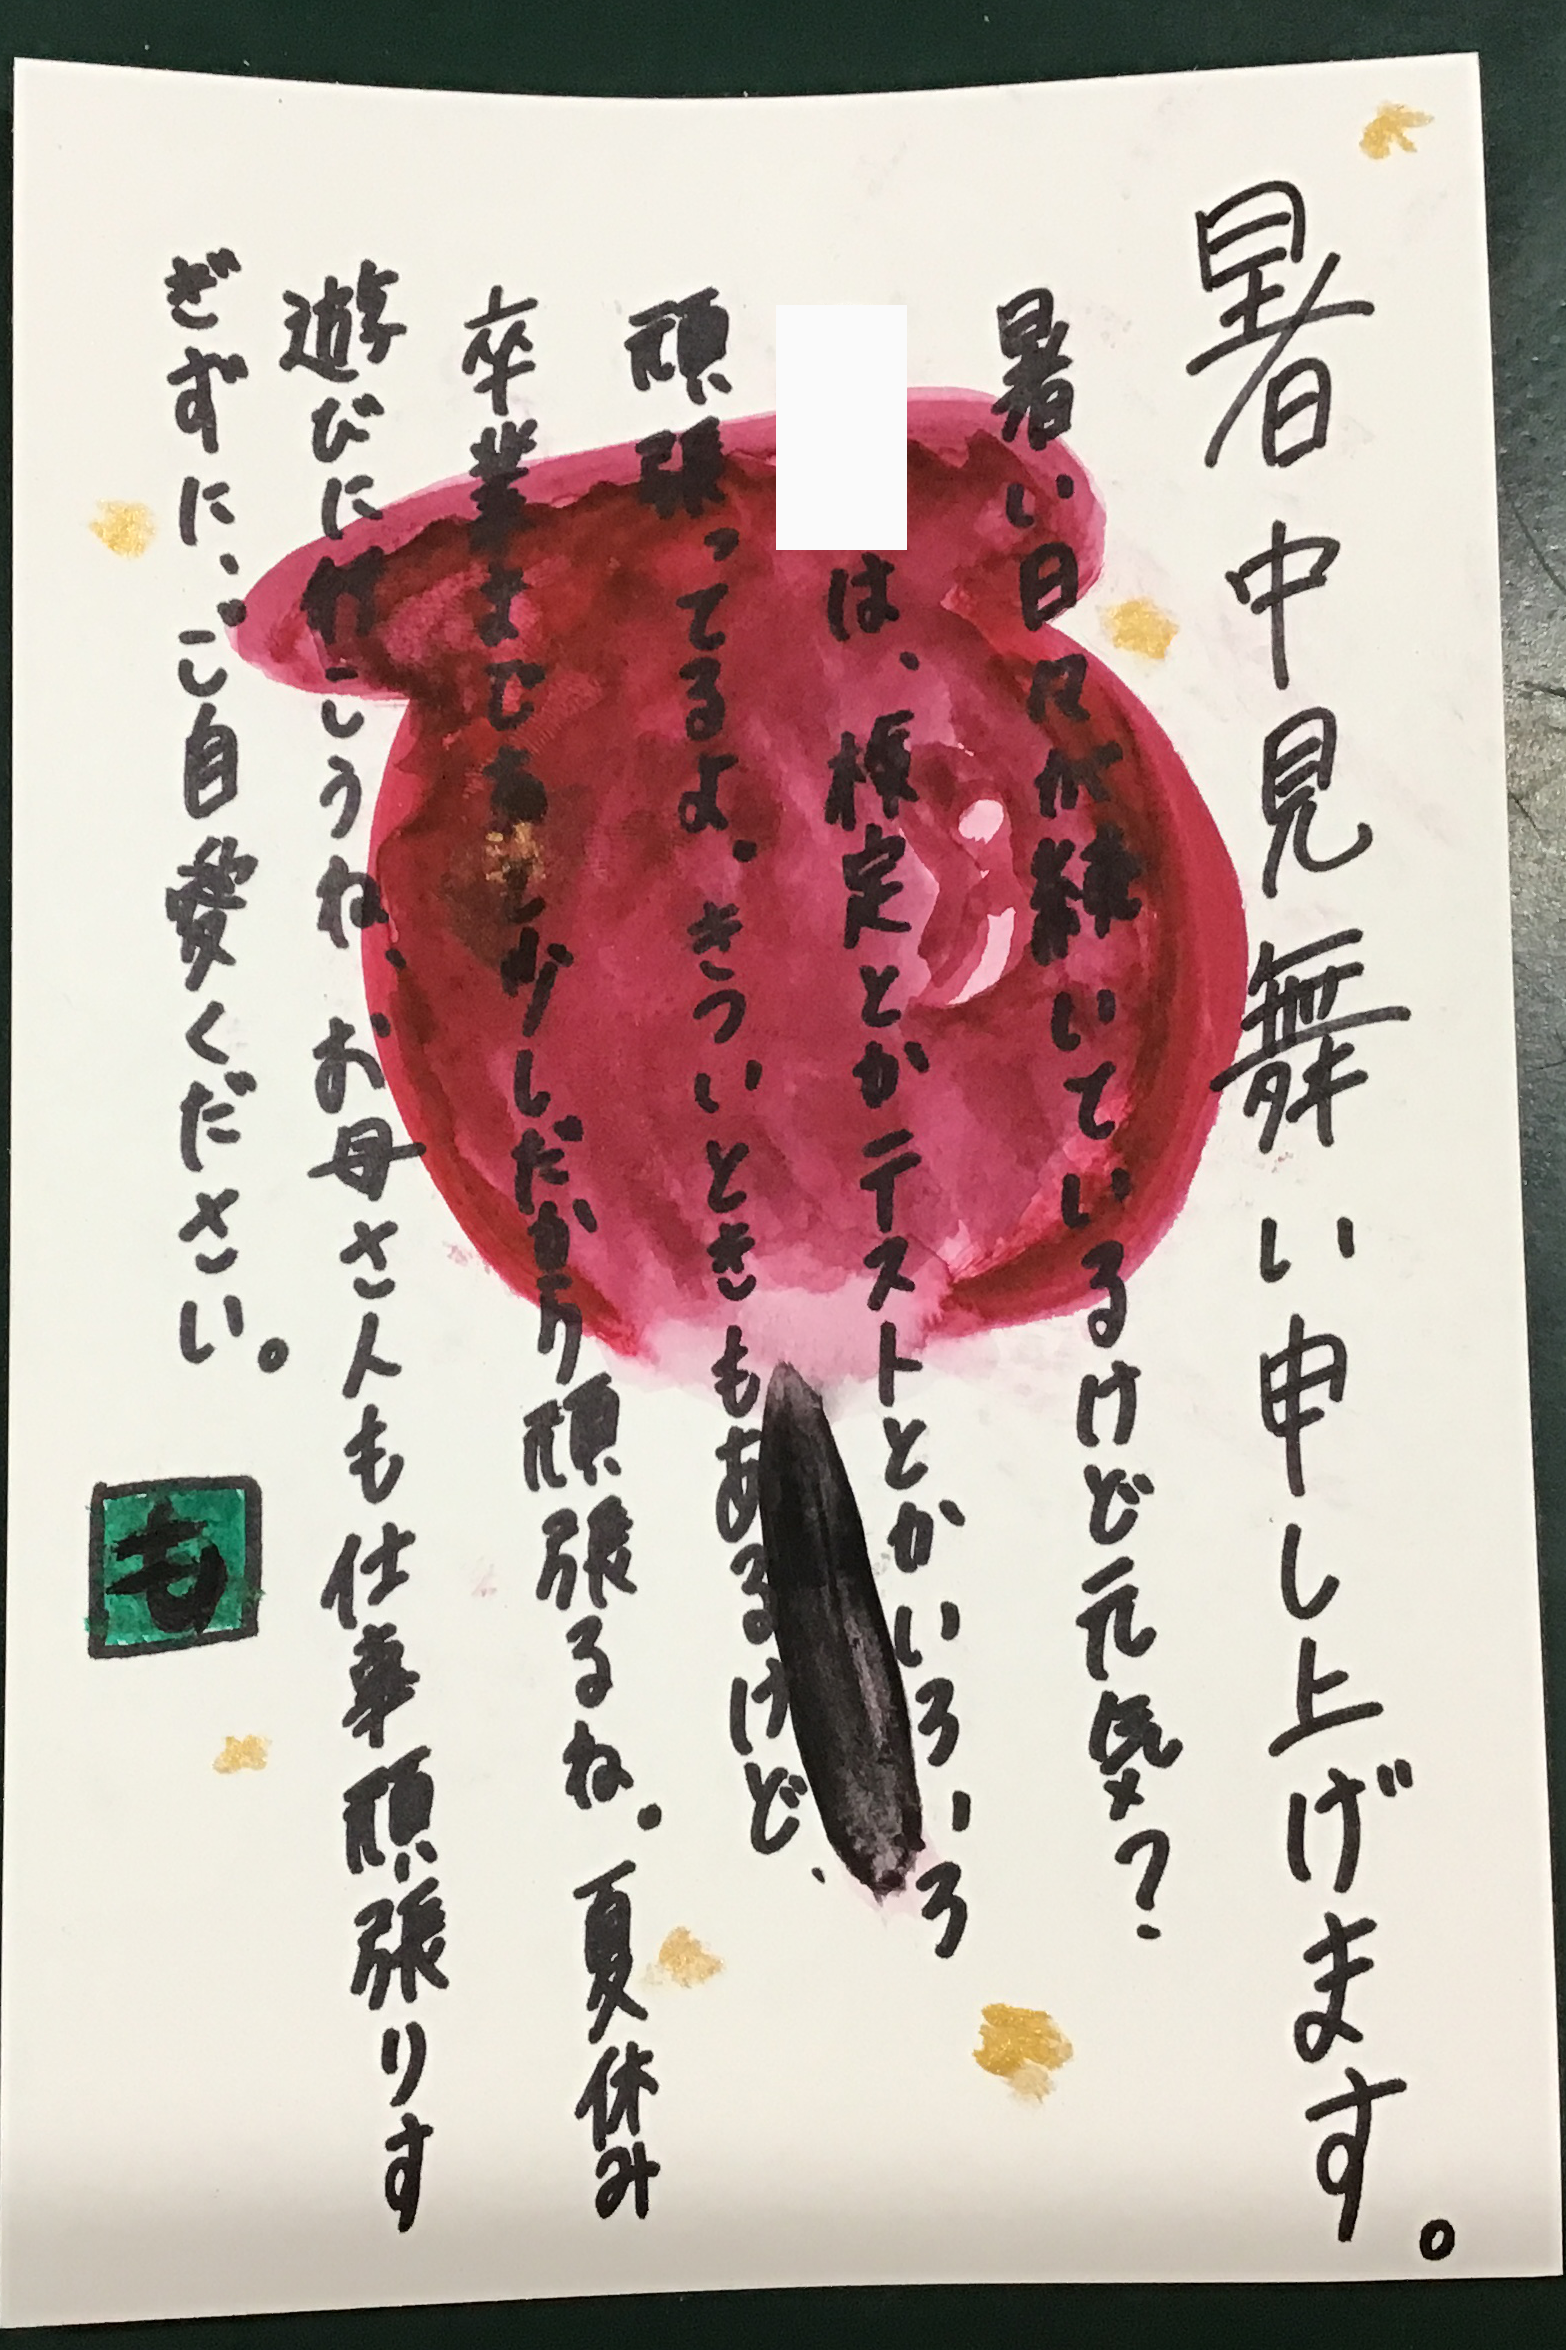 暑中見舞い申し上げます。
暑い日々が続いているけど元気?
は、検定とかテストとかいろいろ
頑張ってるよ。きついときもあるけど、
卒業まであと少しだから頑張るね。夏休み
遊びに行こうね、お母さんも仕事頑張りす
ぎずに、ご自愛ください。
も